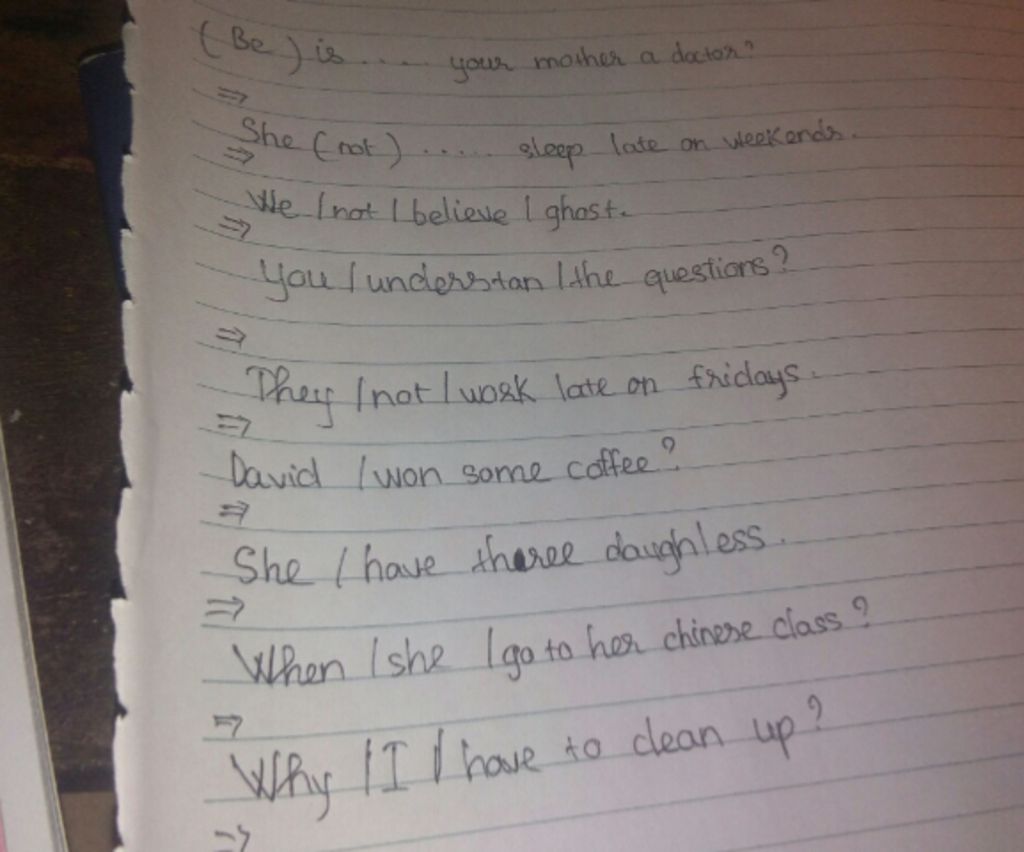 (Be) is .... your mother a doctor?
⇒
She (not) ..... sleep late on weekends.
⇒
We / not / believe / ghost.
⇒
You / understan / the questions?
⇒
They / not / work late on fridays.
⇒
David / won some coffee?
⇒
She / have three daughless.
⇒
When / she / go to her chinese class?
⇒
Why / I / have to clean up?
⇒